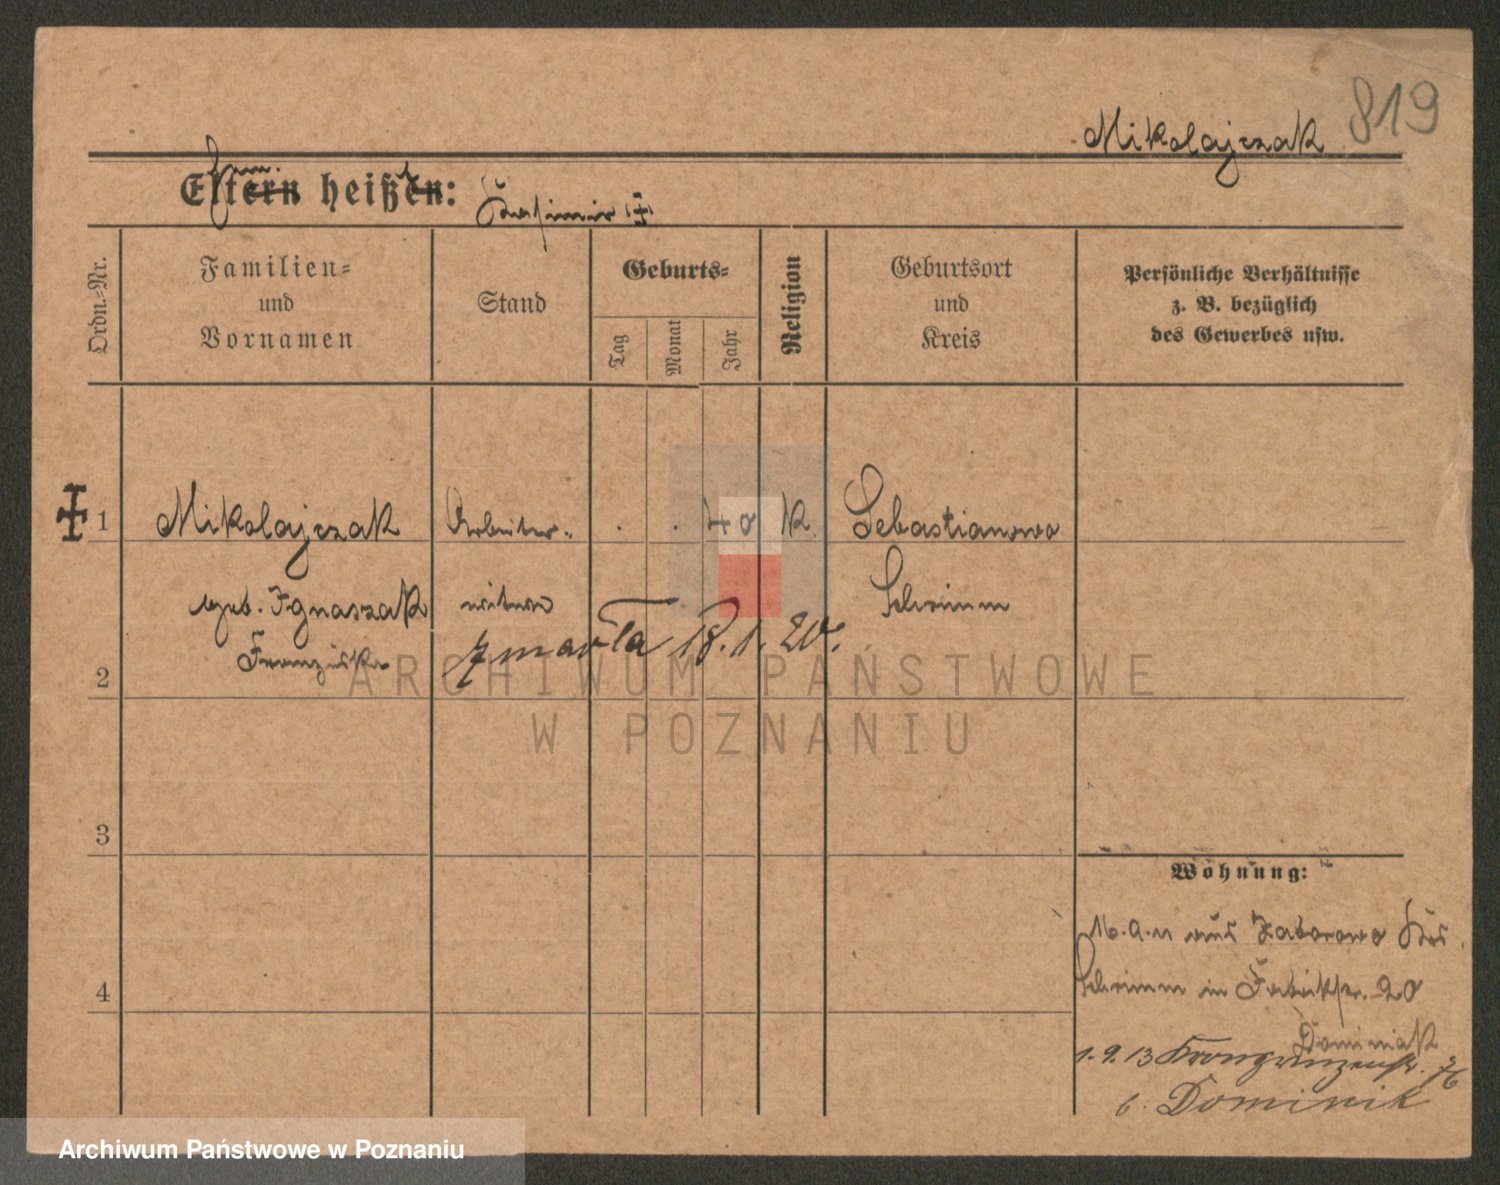 819
Mikolajczak
Eltern heißen: Kasimir
Ordn.-Nr.
Familien-
und
Vornamen
Stand
Geburts-
Tag
Monat
Jahr
Religion
Geburtsort
und
Kreis
Persönliche Verhältnisse
z. B. bezüglich
des Gewerbes usw.
1 Mikolajczak Arbeiter- . . 40 K. Sebastianowo
geb. Ignaszak witwe Schrimm
Franziska zmarła 18.1.20.
2
3
4
Wohnung:
aus Zaborowo Krs.
Schrimm in Fabrikstr. 20
Dominiak
1.9.13 Kronprinzenstr. 76
b. Dominik
ARCHIWUM PAŃSTWOWE
W POZNANIU
Archiwum Państwowe w Poznaniu